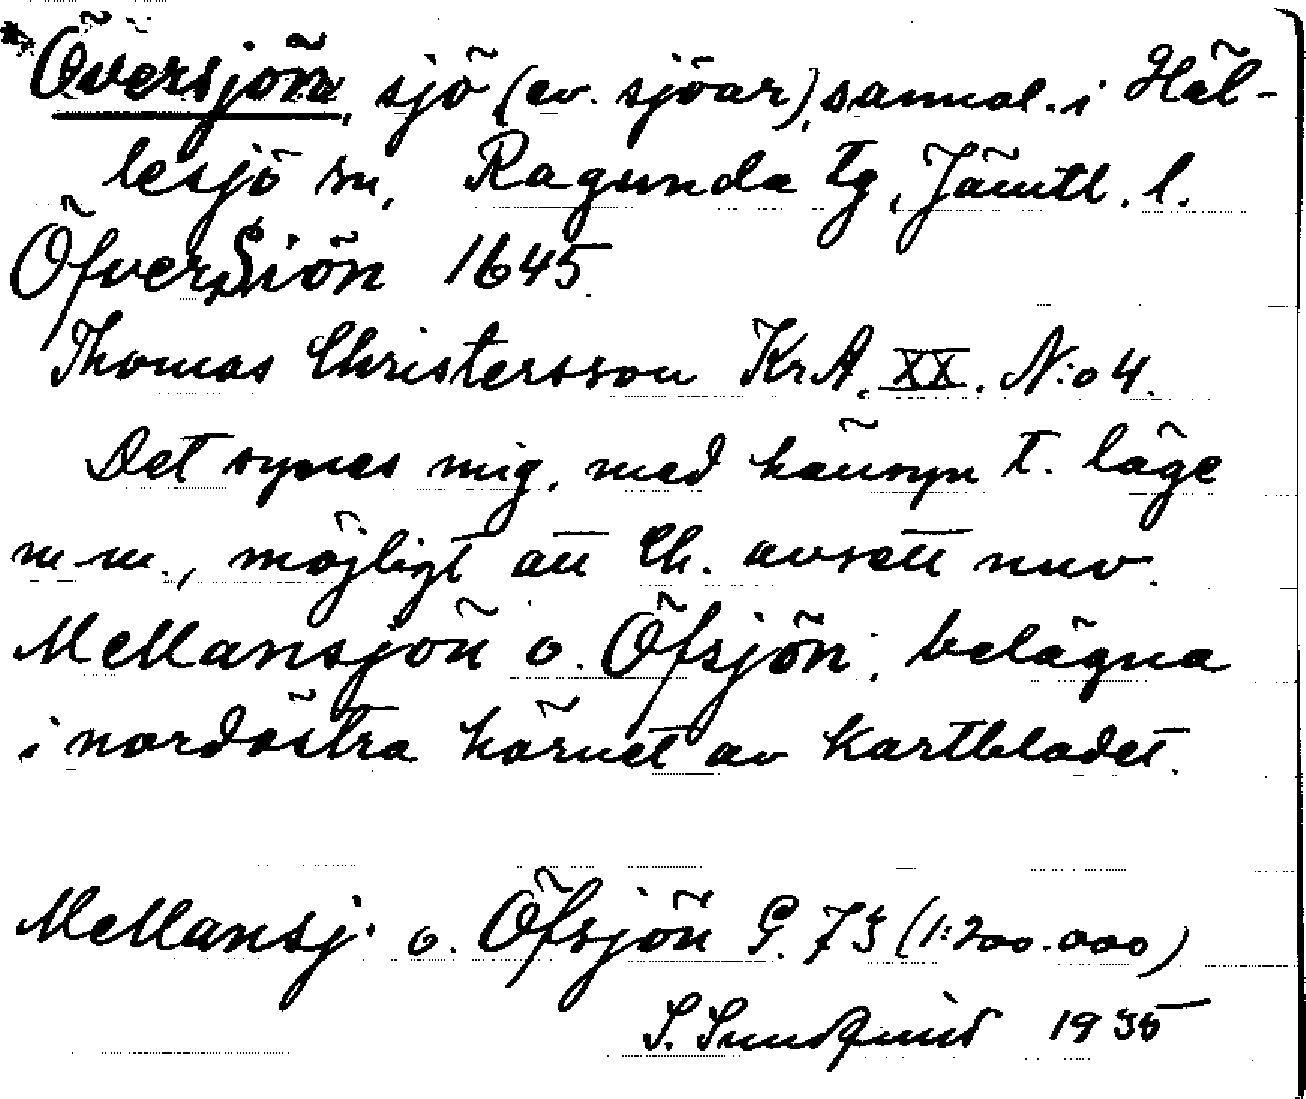 *Översjön, sjö (ev. sjöar), samml. i Häl-
lesjö sn, Ragunda tg, Jämtl. l.
ÖfverSiön 1645
Thomas Christersson KrA. XX. N:o 4.
Det synes mig, med hänsyn t. läge
m.m., möjligt att Ch. avsett nuv.
Mellansjön o. Öfsjön, belägna
i nordöstra hörnet av kartbladet.
Mellansj. o. Öfsjön G. 73 (1:200.000)
S. Sundqvist 1935